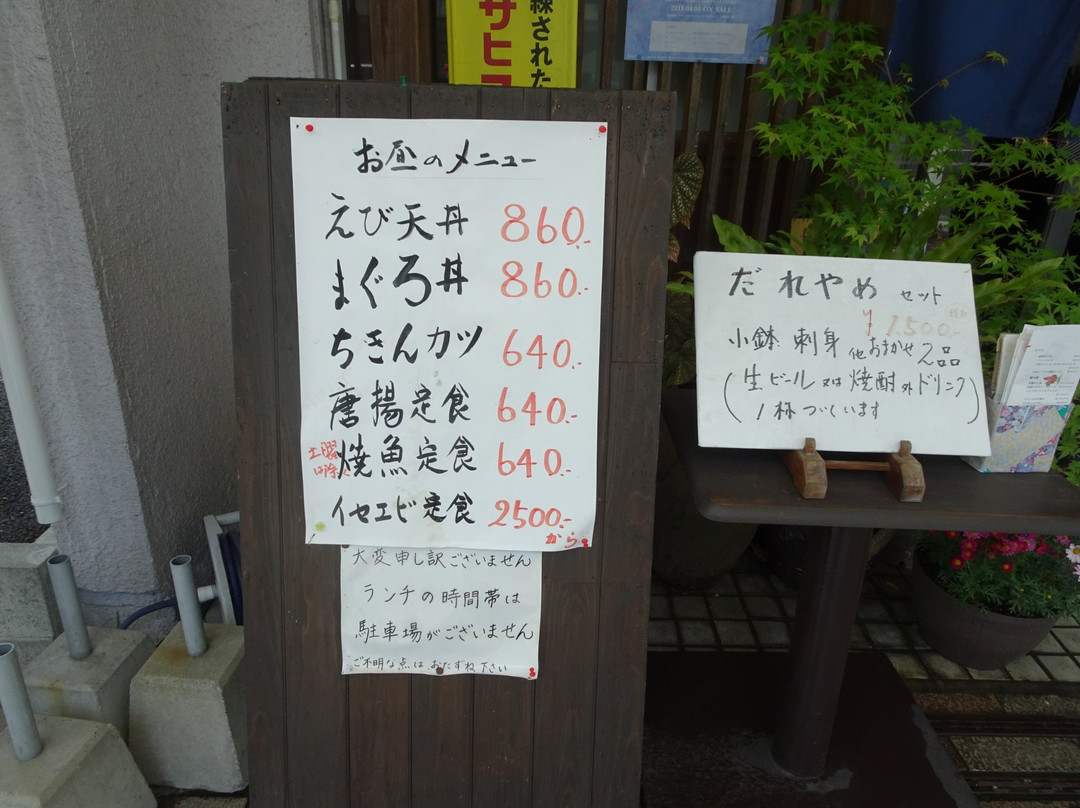 練された
サヒス
お昼のメニュー
えび天丼 860.-
まぐろ丼 860.-
ちきんカツ 640.-
唐揚定食 640.-
土曜
日除く
焼魚定食 640.-
イセエビ定食 2500.-
から
大変申し訳ございません
ランチの時間帯は
駐車場がございません
ご不明な点は、おたずね下さい
だれやめ セット
¥1,500-
小鉢 刺身 他おまかせ2品
(生ビール又は焼酎外ドリンク
1杯ついています)